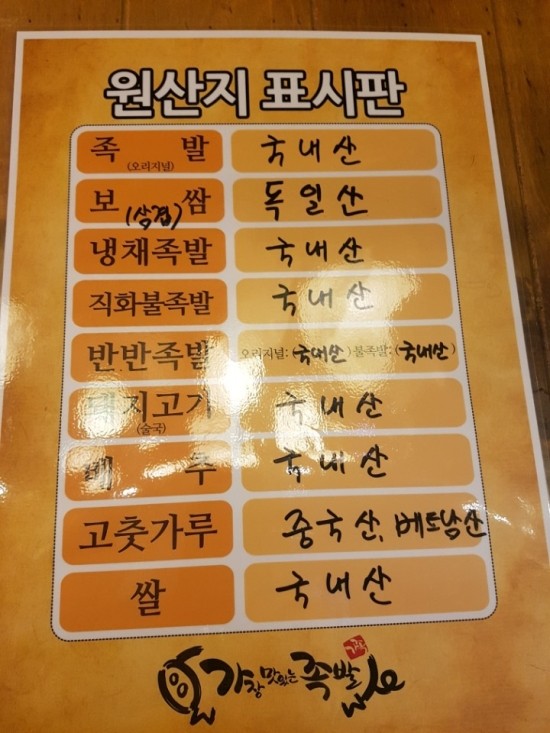 원산지 표시판
족 발 국내산
(오리지널)
보 쌈 독일산
(삼겹)
냉채족발 국내산
직화불족발 국내산
반반족발 오리지널: (국내산) 불족발: (국내산)
돼지고기 국내산
(술국)
배 추 국내산
고춧가루 중국산, 베트남산
쌀 국내산
가장 맛있는 족발